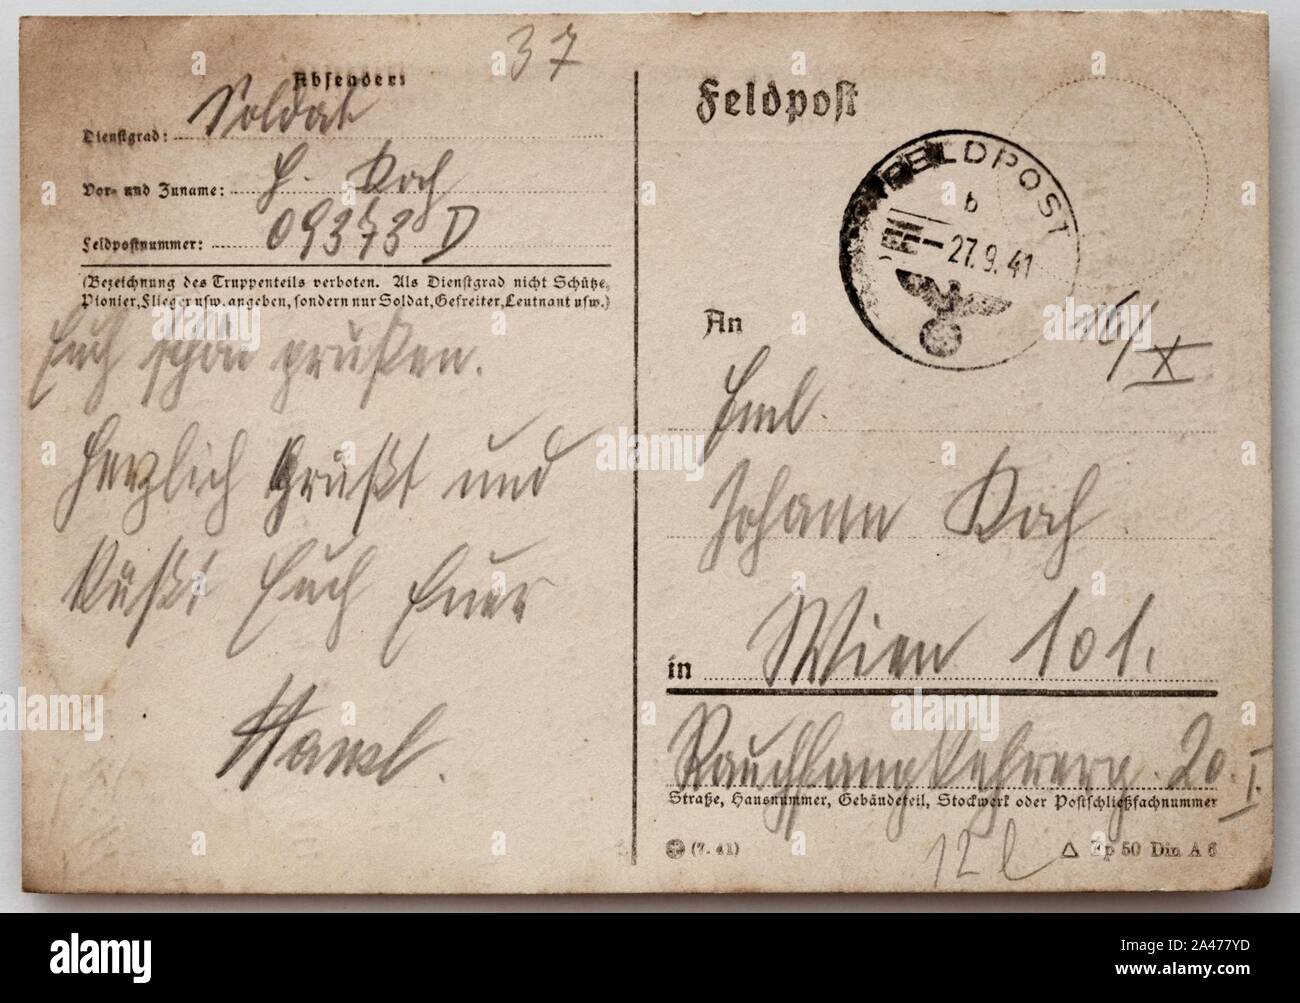 37
Absender:
Dienstgrad: Soldat
Vor- und Zuname: H. Koch
Feldpostnummer: 09373 D
(Bezeichnung des Truppenteils verboten. Als Dienstgrad nicht Schütze,
Pionier, Flieger usw. angeben, sondern nur Soldat, Gefreiter, Leutnant usw.)
Euch schön grüßen.
Herzlich Grüßt und
Küßt Euch Euer
Hansl.
Feldpost
FELDPOST
b
27.9.41
16/X
An
Johann Koch
in Wien 101.
Rauchfangkehrerg. 20. I.
Straße, Hausnummer, Gebäudeteil, Stockwerk oder Postschließfachnummer
(7. 41)
Fp 50 Din A 6
alamy
Image ID: 2A477YD
www.alamy.com